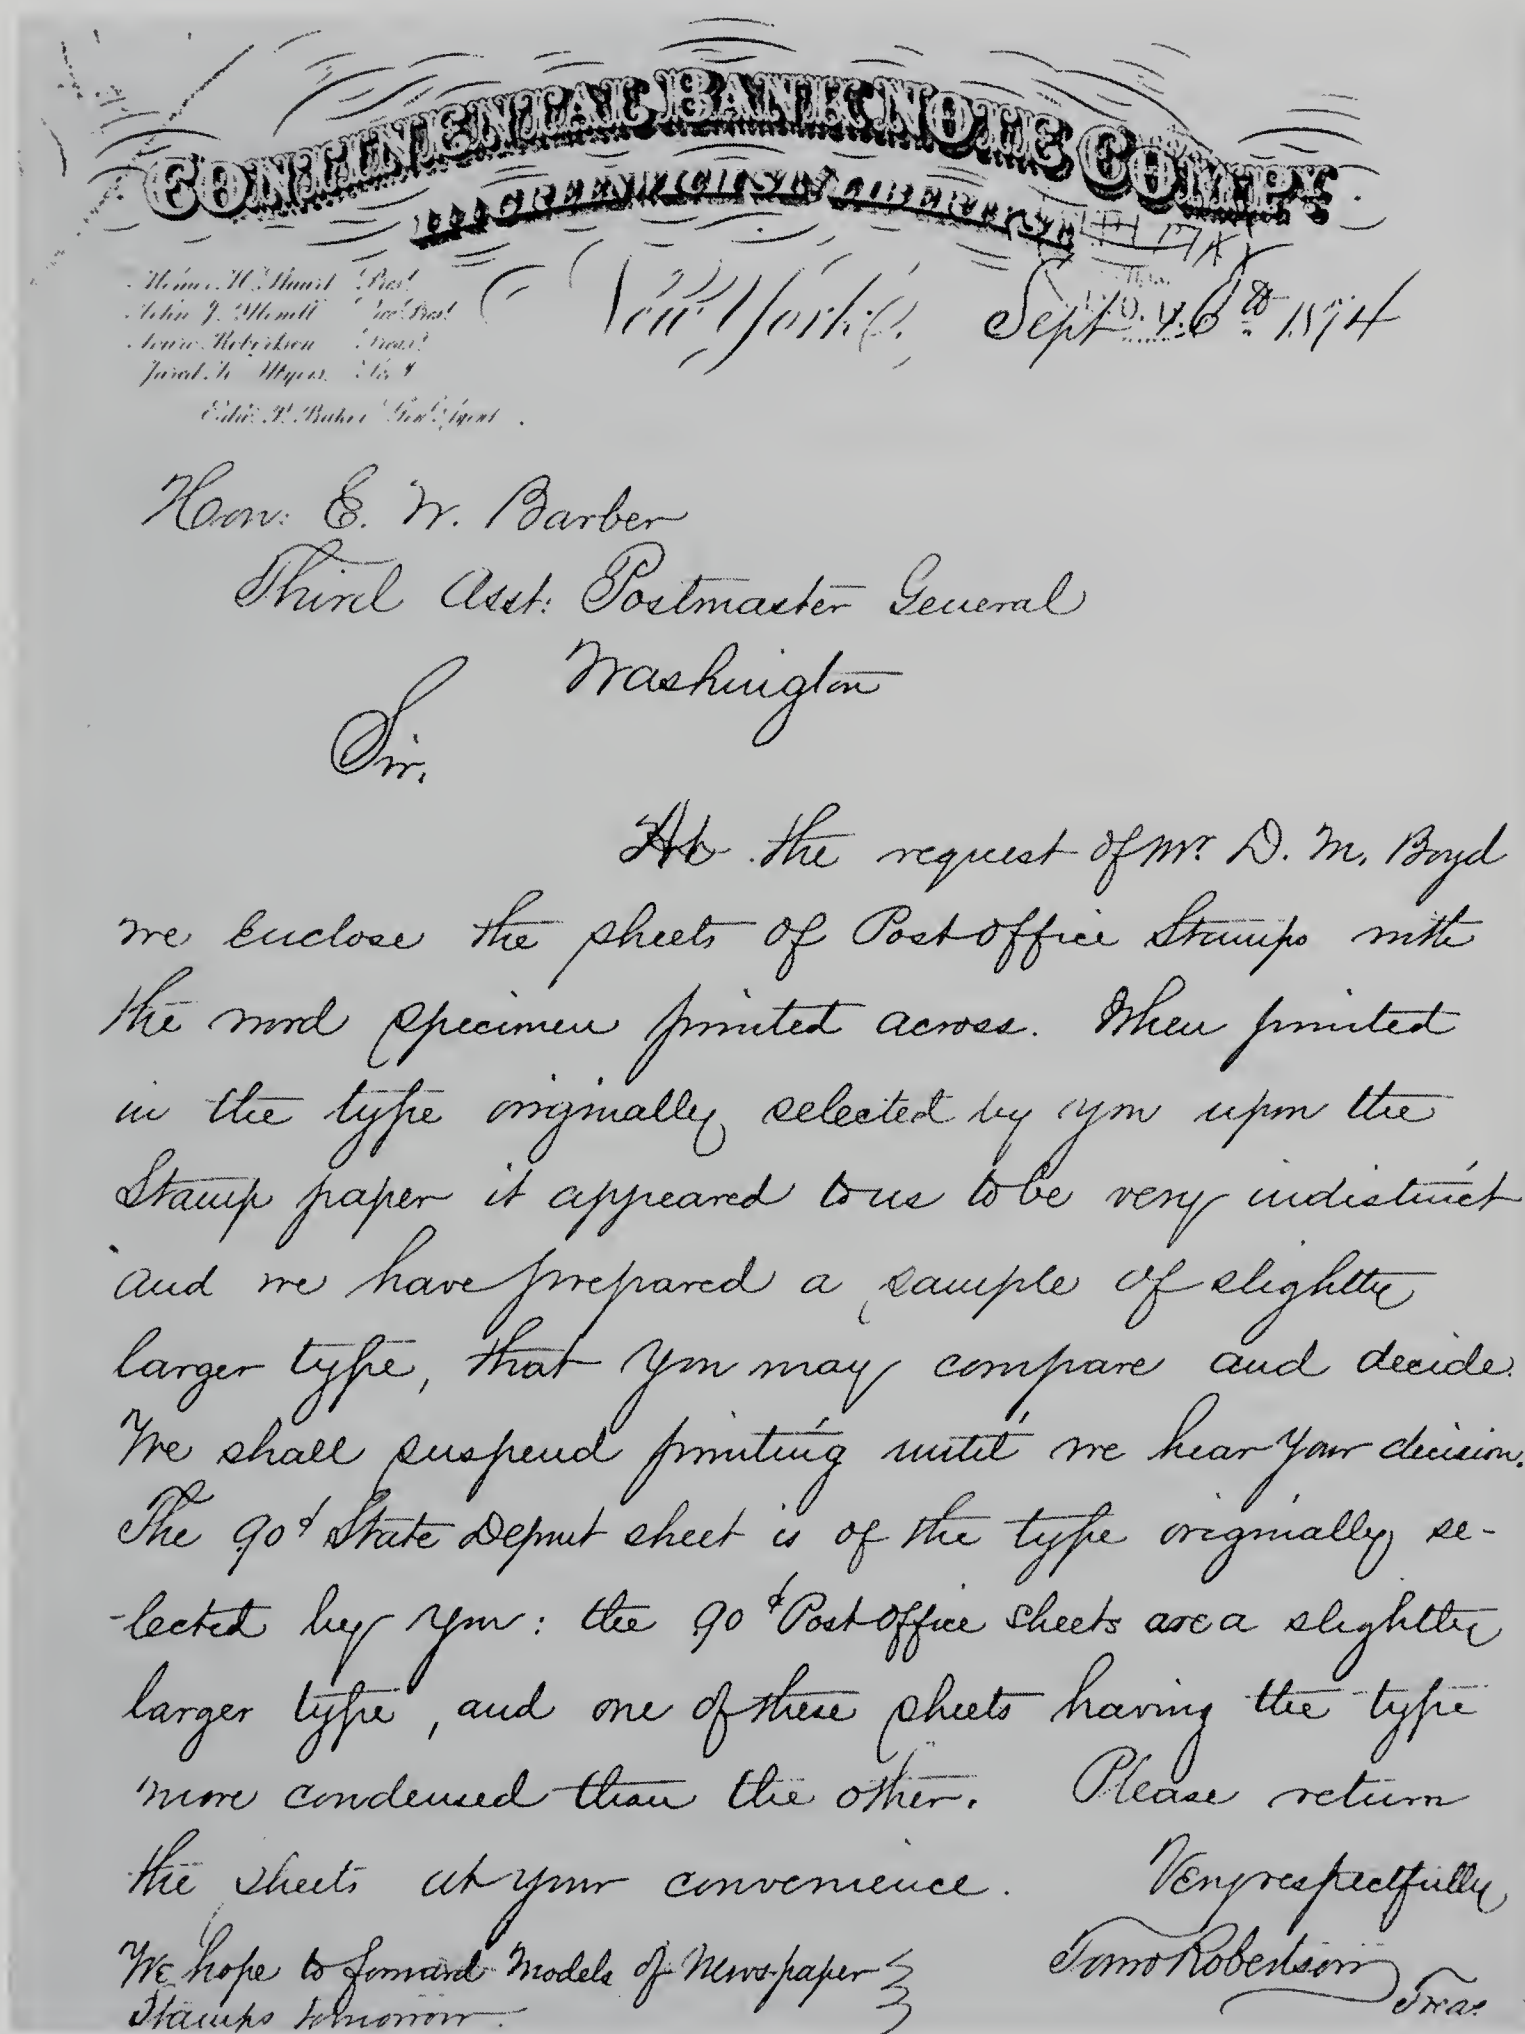 CONTINENTAL BANK NOTE COMPY.
GREENWICH ST. LIBERTY ST.
New York, Sept 1874
Pres.
John J.
Robertson
Myers
Hon: E. W. Barber
Third Asst: Postmaster General
Washington
Sir,
At the request of Mr. D. M. Boyd
we enclose the sheets of Post office Stamps with
the word specimen printed across. When printed
in the type originally selected by you upon the
Stamp paper it appeared to us to be very indistinct
and we have prepared a sample of slightly
larger type, that you may compare and decide.
We shall suspend printing until we hear your decision.
The 90¢ State Depmt sheet is of the type originally se-
-lected by you: the 90¢ Post office sheets are a slightly
larger type, and one of these sheets having the type
more condensed than the other. Please return
the sheets at your convenience. Very respectfully
We hope to forward Models of Newspaper
Stamps tomorrow.
Robertson
Treas